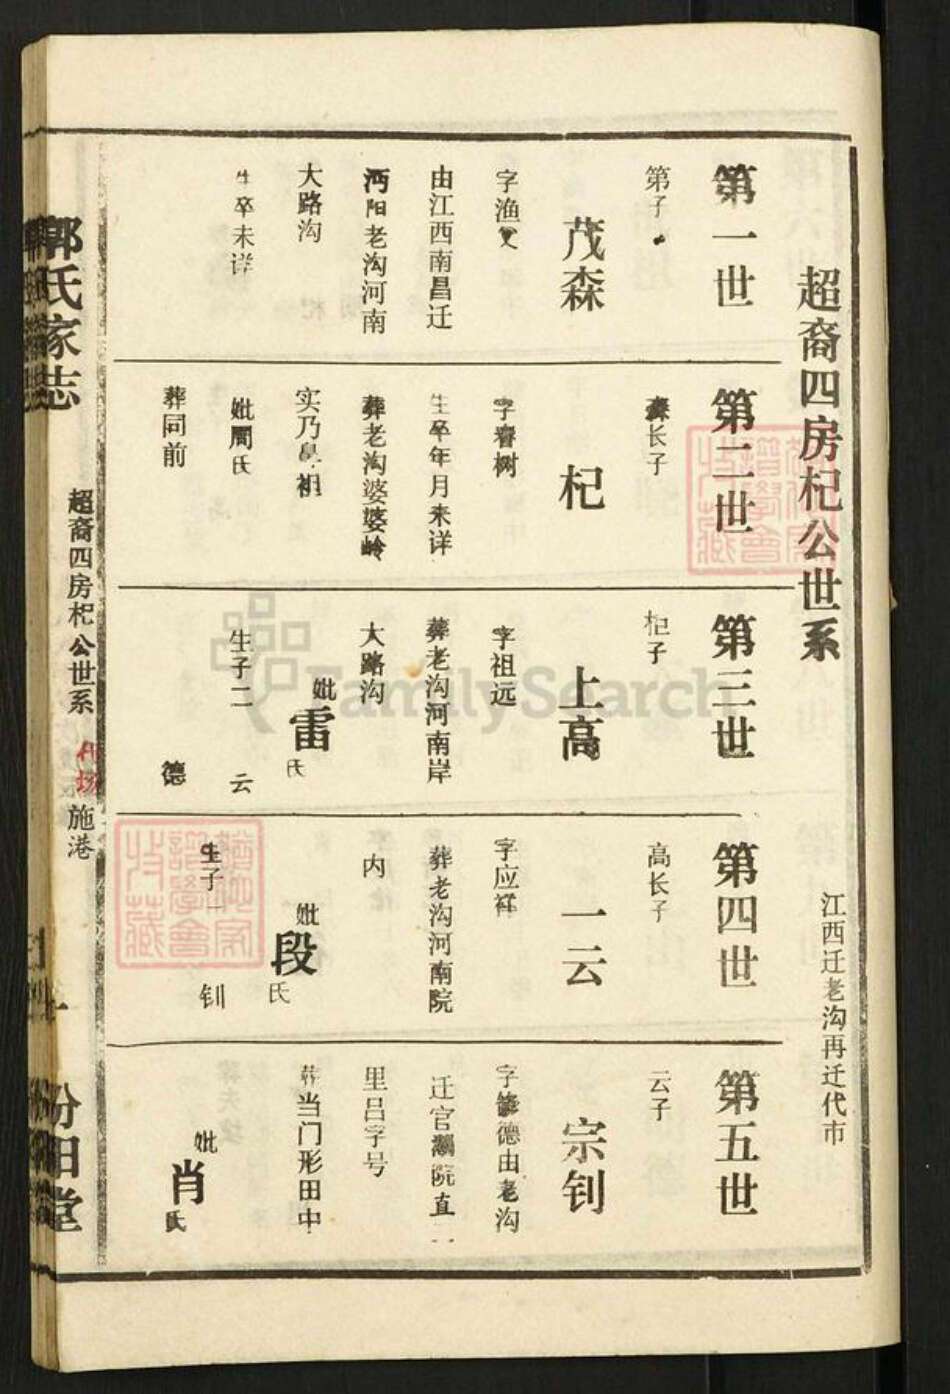 超裔四房杞公世系
江西迁老沟再迁代市
第一世
第子
茂森
字渔叉
由江西南昌迁
沔阳老沟河南
大路沟
生卒未详
第二世
森长子
杞
字春树
生卒年月来详
葬老沟婆婆岭
实乃鼻祖
妣周氏
葬同前
第三世
杞子
上高
字祖远
葬老沟河南岸
大路沟
妣雷氏
生子二 云
德
第四世
高长子
一云
字应祥
葬老沟河南院
内
妣段氏
生子一
钊
第五世
云子
宗钊
字德由老沟
迁官院直一
里吕字号
葬当门形田中
妣肖氏
郭氏家志
超裔四房杞公世系
施港
汾阳堂
谱学会
收藏
谱学会
收藏
FamilySearch